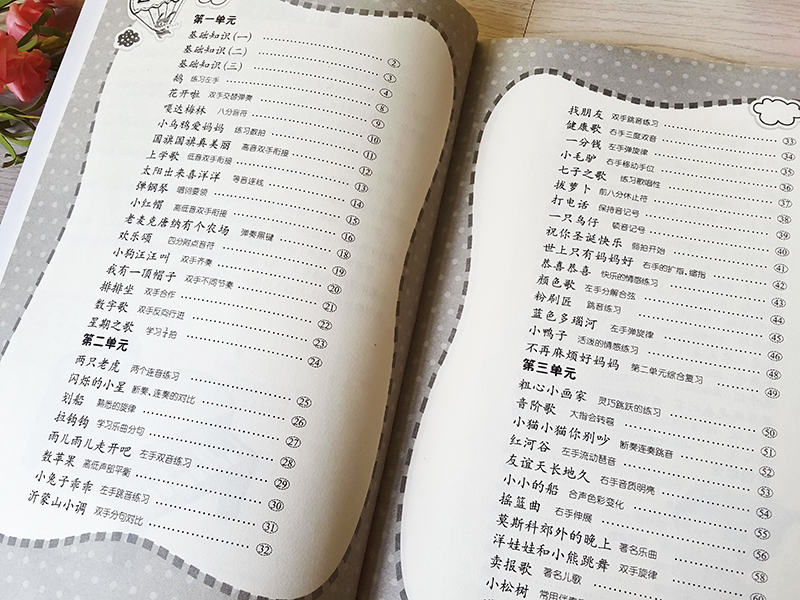 第一单元
基础知识(一) ②
基础知识(二) ③
基础知识(三) ④
鹅 练习左手 ⑧
花开啦 双手交替弹奏 ⑨
嘎达梅林 八分音符 ⑩
小乌鸦爱妈妈 练习数拍 ⑪
国旗国旗真美丽 高音双手衔接 ⑫
上学歌 低音双手衔接 ⑬
太阳出来喜洋洋 等音连线 ⑭
弹钢琴 唱词要领 ⑮
小红帽 高低音双手衔接 ⑯
老麦克唐纳有个农场 弹奏黑键 ⑱
欢乐颂 四分附点音符 ⑲
小狗汪汪叫 双手齐奏 ⑳
我有一顶帽子 双手不同节奏 ㉑
排排坐 双手合作 ㉒
数字歌 双手反向行进 ㉓
星期之歌 学习¾拍 ㉔
第二单元
两只老虎 两个连音练习 ㉕
闪烁的小星 断奏、连奏的对比 ㉖
划船 熟悉的旋律 ㉗
拉钩钩 学习乐曲分句 ㉘
雨儿雨儿走开吧 左手双音练习 ㉙
数苹果 高低声部平衡 ㉚
小兔子乖乖 左手跳音练习 ㉛
沂蒙山小调 双手分句对比 ㉜
找朋友 双手跳音练习 ㉝
健康歌 右手三度双音 ㉞
一分钱 左手弹旋律 ㉟
小毛驴 右手移动手位 ㊱
七子之歌 练习歌唱性 ㊲
拔萝卜 前八分休止符 ㊳
打电话 保持音记号 ㊴
一只鸟仔 顿音记号 ㊵
祝你圣诞快乐 弱拍开始 ㊶
世上只有妈妈好 右手的扩指、缩指 ㊷
恭喜恭喜 快乐的情感练习 ㊸
颜色歌 左手分解合弦 ㊹
粉刷匠 跳音练习 ㊺
蓝色多瑙河 左手弹旋律 ㊻
小鸭子 活泼的情感练习 ㊽
不再麻烦好妈妈 第二单元综合复习 ㊾
第三单元
粗心小画家 灵巧跳跃的练习 ㊿
音阶歌 大指会转弯 51
小猫小猫你别吵 断奏连奏跳音 52
红河谷 左手流动琶音 53
友谊天长地久 右手音质明亮 54
小小的船 合声色彩变化 55
摇篮曲 右手伸展 56
莫斯科郊外的晚上 著名乐曲 58
洋娃娃和小熊跳舞 双手旋律 60
卖报歌 著名儿歌
小松树